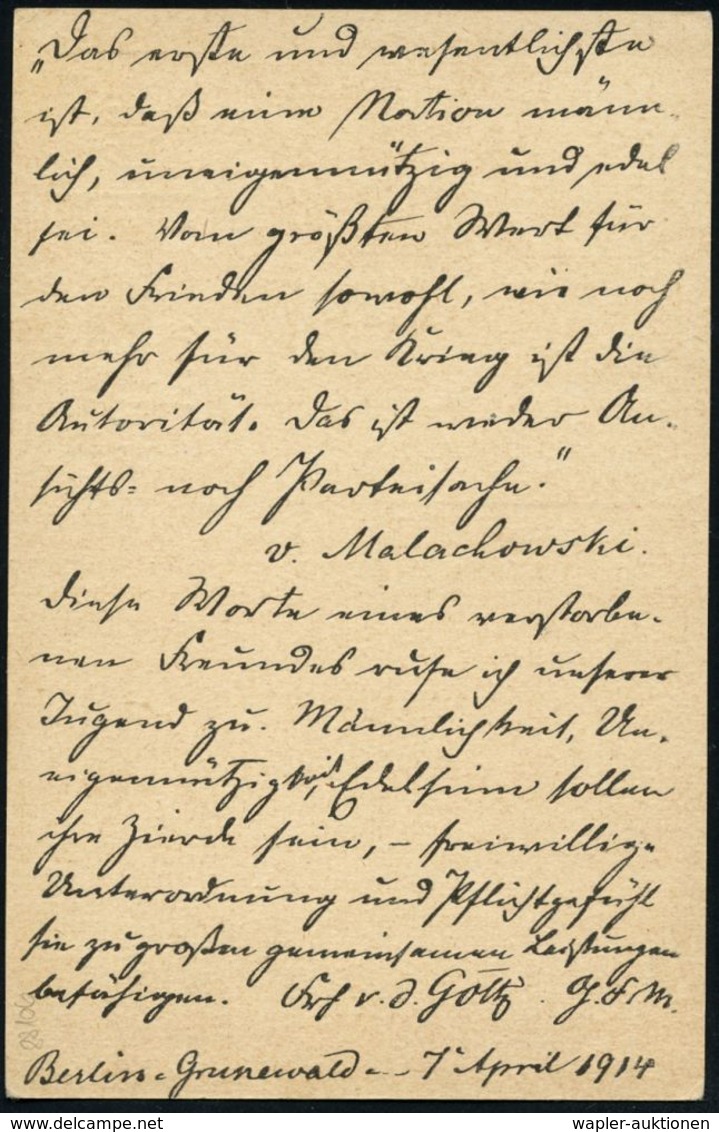 „Das erste und wesentlichste
ist, daß eine Nation männ-
lich, uneigennützig und edel
sei. Vom größten Wert für
den Frieden sowohl, wie noch
mehr für den Krieg ist die
Autorität. Das ist weder An-
sichts- noch Parteisache."
v. Malachowski.
Diese Worte eines verstorbe-
nen Freundes rufe ich unserer
Jugend zu. Männlichkeit, Un-
eigennützigkeit, Edelsinn sollen
ihre Zierde sein, – freiwillige
Unterordnung und Pflichtgefühl
sie zu großen gemeinsamen Leistungen
befähigen. Frh v. d. Goltz. G. F. M.
Berlin-Grunewald - 7 April 1914
wapler-auktionen